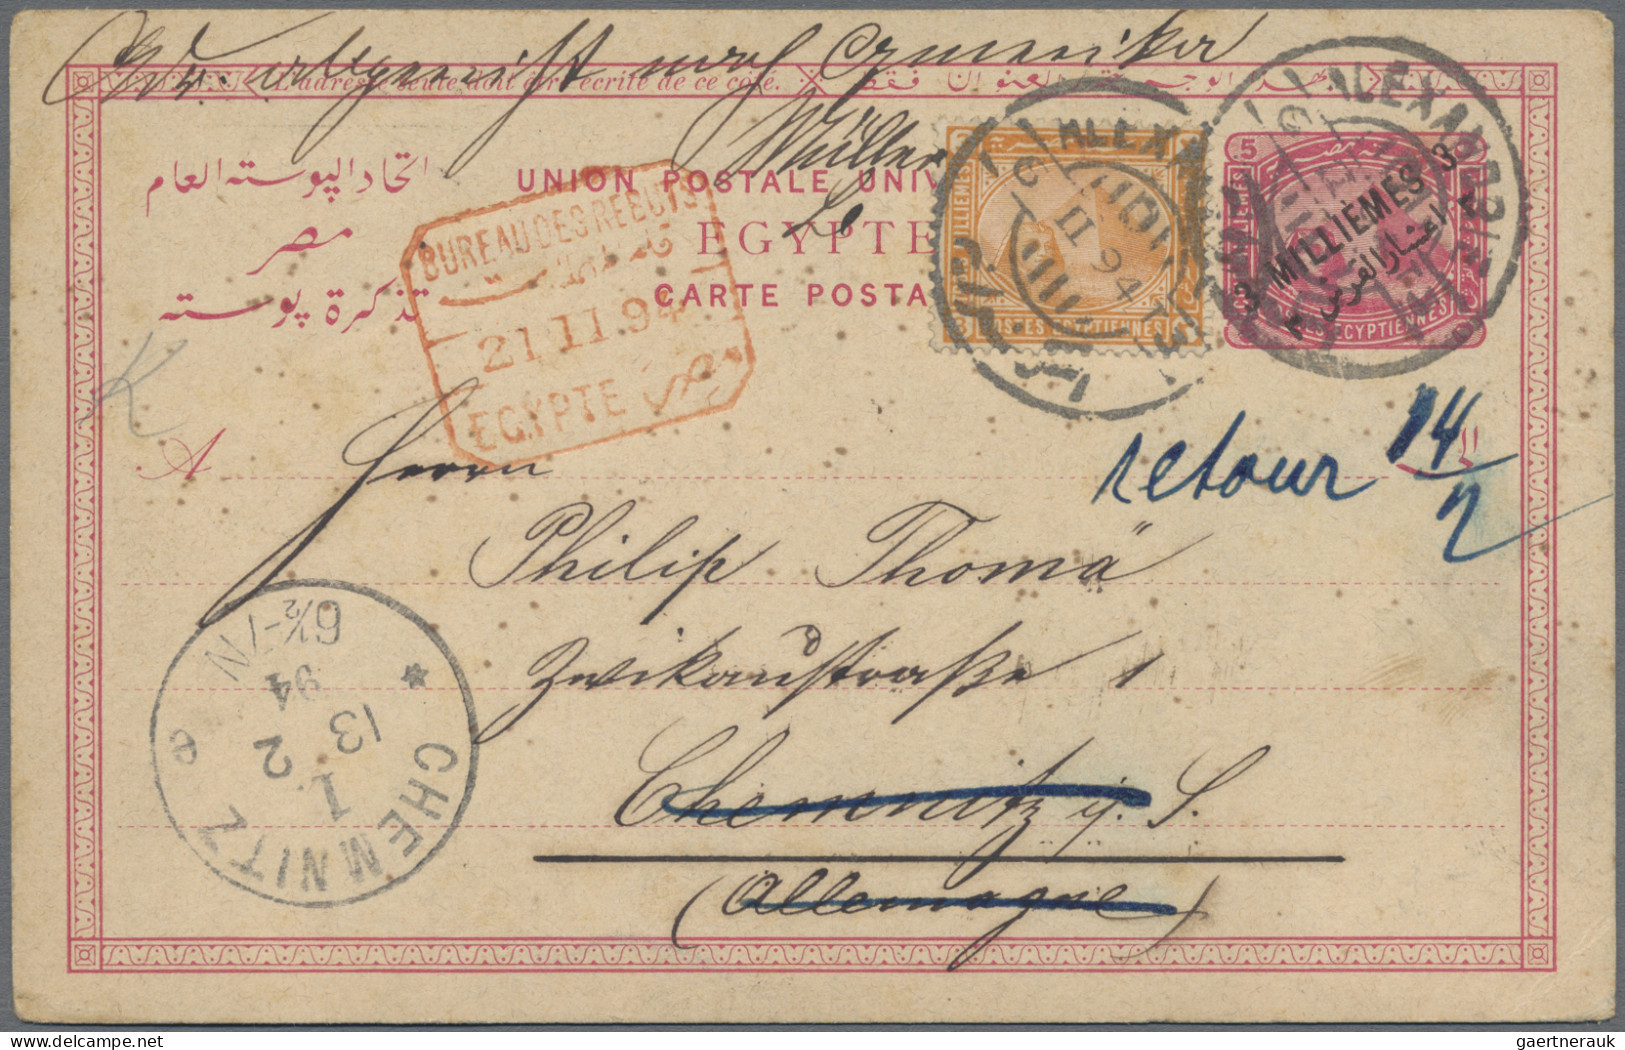 abgereist nach Amerika
L'adresse seule doit être écrite de ce côté.
Müller
اتحاد البوسته العام
مصر
تذكرة بوسته
UNION POSTALE UNIV
EGYPTE
CARTE POSTA
BUREAU DES REBUTS
21 II 94
EGYPTE
مصر
MILLIEMES
POSTES EGYPTIENNES
3
ALEXAN
II 94
5
3 MILLIEMES 3
POSTES EGYPTIENNES
ALEXANDRIE
retour 14/2
A
Herrn
Philip Thomä
Zwikaustraße 1
Chemnitz i. S.
(Allemagne)
CHEMNITZ
1.
13 2
94
6½-7N
e
K
gaertnerauk